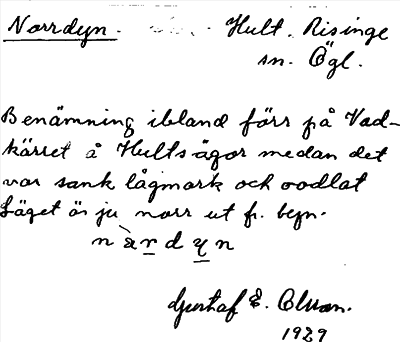 Norrdyn. Hult. Risinge
sn. Ögl.
Benämning ibland förr på Vad-
kärret å Hults ägor medan det
var sank lågmark och oodlat
Läget är ju norr ut fr. byn.
nàrdyn
Gustaf E. Olsson.
1929